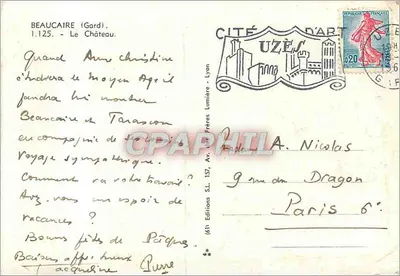 BEAUCAIRE (Gard).
1.125. - Le Château.
Quand Anne Christine
étudiera le Moyen Age il
faudra lui montrer
Beaucaire et Tarascon
en compagnie de
voyage sympathique.
Comment va votre travail ?
Avez vous un espoir de
vacances ?
Bonnes fêtes de Pâques
Baisers
Jacqueline Pierre
CITÉ D'ART
UZÈS
0,20
CPARHIL
A. Nicolas
9 rue du Dragon
Paris 6e